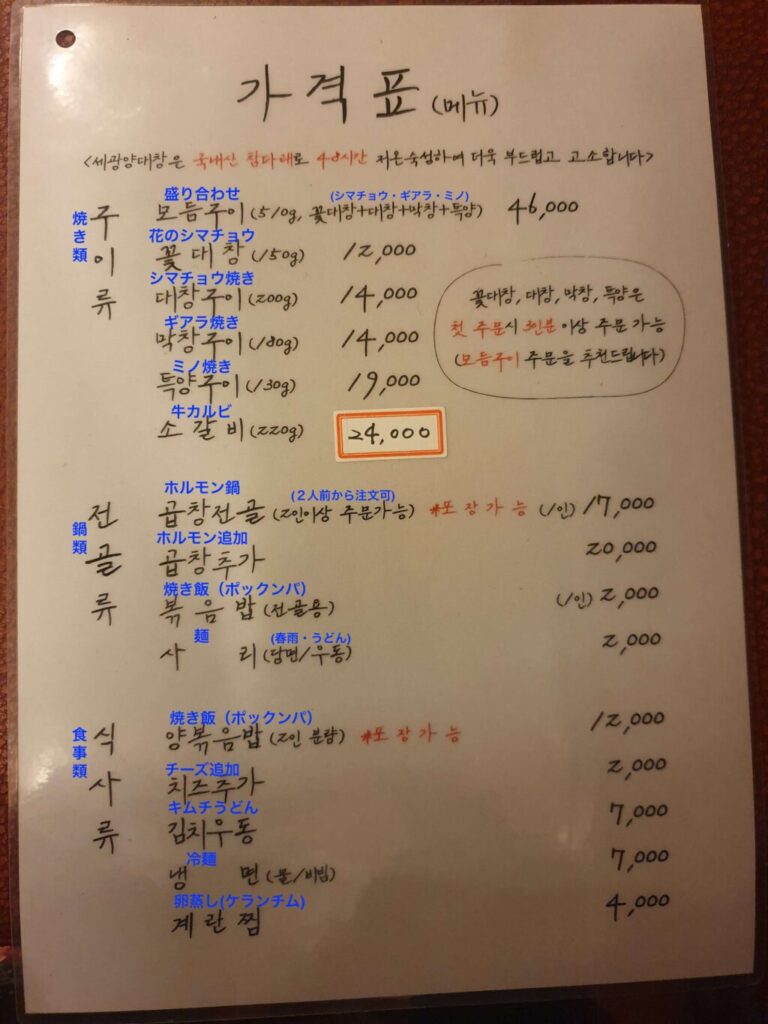 가격표 (메뉴)
<세광양대창은 국내산 참다래로 48시간 저온숙성하여 더욱 부드럽고 고소합니다>
焼き類
구이류
盛り合わせ (シマチョウ・ギアラ・ミノ)
모듬구이 (510g, 꽃대창+대창+막창+특양) 46,000
花のシマチョウ
꽃대창 (150g) 12,000
シマチョウ焼き
대창구이 (200g) 14,000
ギアラ焼き
막창구이 (180g) 14,000
ミノ焼き
특양구이 (130g) 19,000
牛カルビ
소갈비 (220g) 24,000
꽃대창, 대창, 막창, 특양은
첫 주문시 3인분 이상 주문 가능
(모듬구이 주문을 추천드립니다)
鍋類
전골류
ホルモン鍋 (2人前から注文可)
곱창전골 (2인이상 주문가능) #포장가능 (1인) 17,000
ホルモン追加
곱창추가 20,000
焼き飯（ポックンパ）
볶음밥 (전골용) (1인) 2,000
麺 (春雨・うどん)
사리 (당면/우동) 2,000
食事類
식사류
焼き飯（ポックンパ）
양볶음밥 (2인 분량) #포장가능 12,000
チーズ追加
치즈추가 2,000
キムチうどん
김치우동 7,000
冷麺
냉면 (물/비빔) 7,000
卵蒸し(ケランチム)
계란찜 4,000